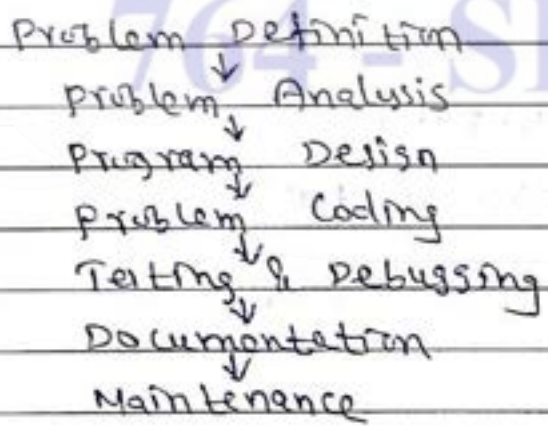 764 - SI
Problem Definition
↓
Problem Analysis
↓
Program Design
↓
Problem Coding
↓
Testing & Debugging
↓
Documentation
↓
Maintenance